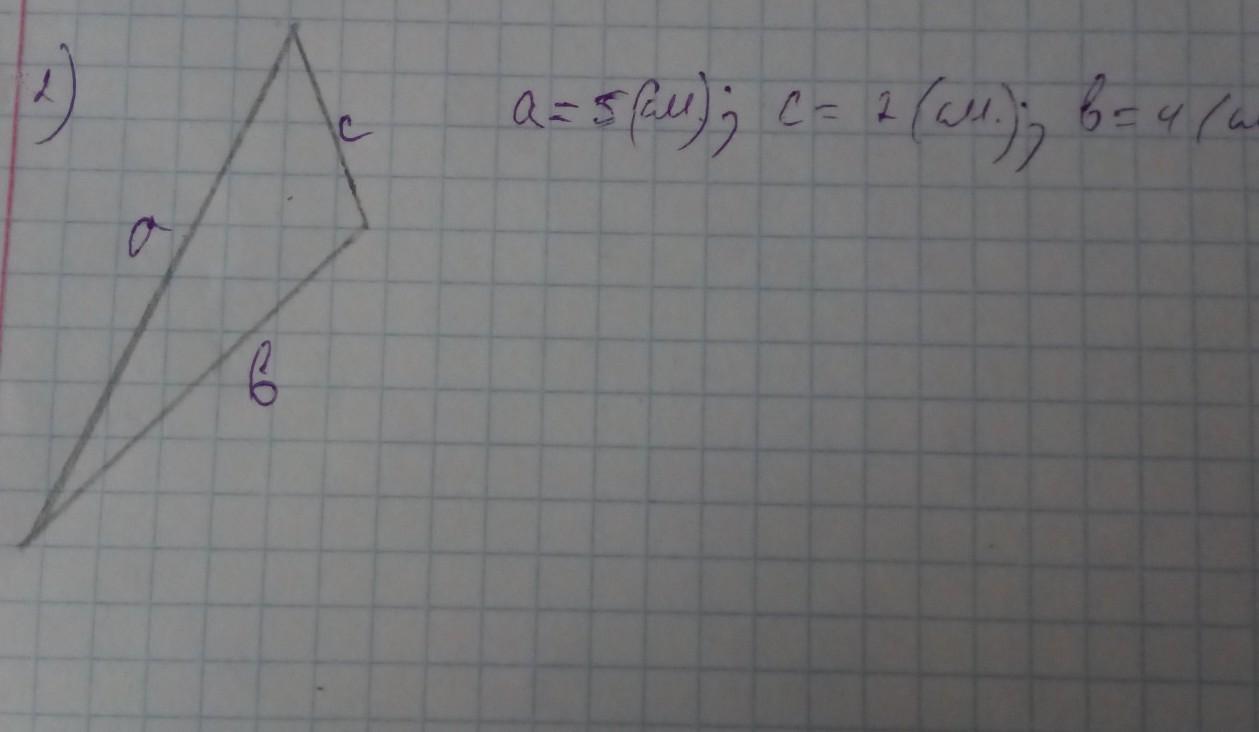 2)
a = 5 (см); c = 2 (см.); в = 4 (см
c
a
в